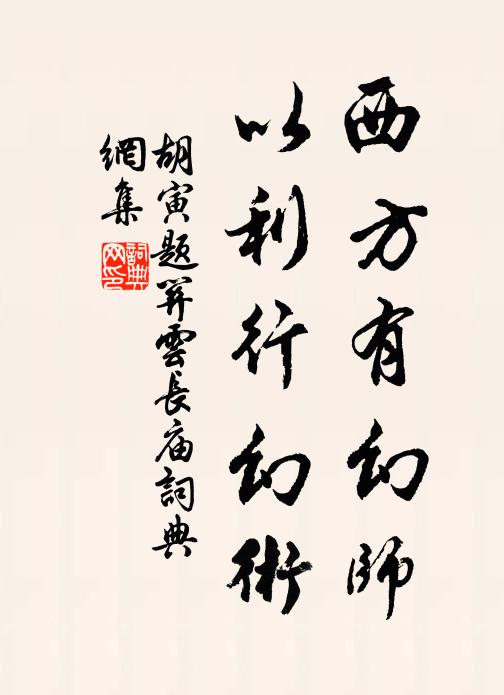 西方有幻師
以利行幻術
胡寅题关雲長庙詞典
網集
詞典
网印